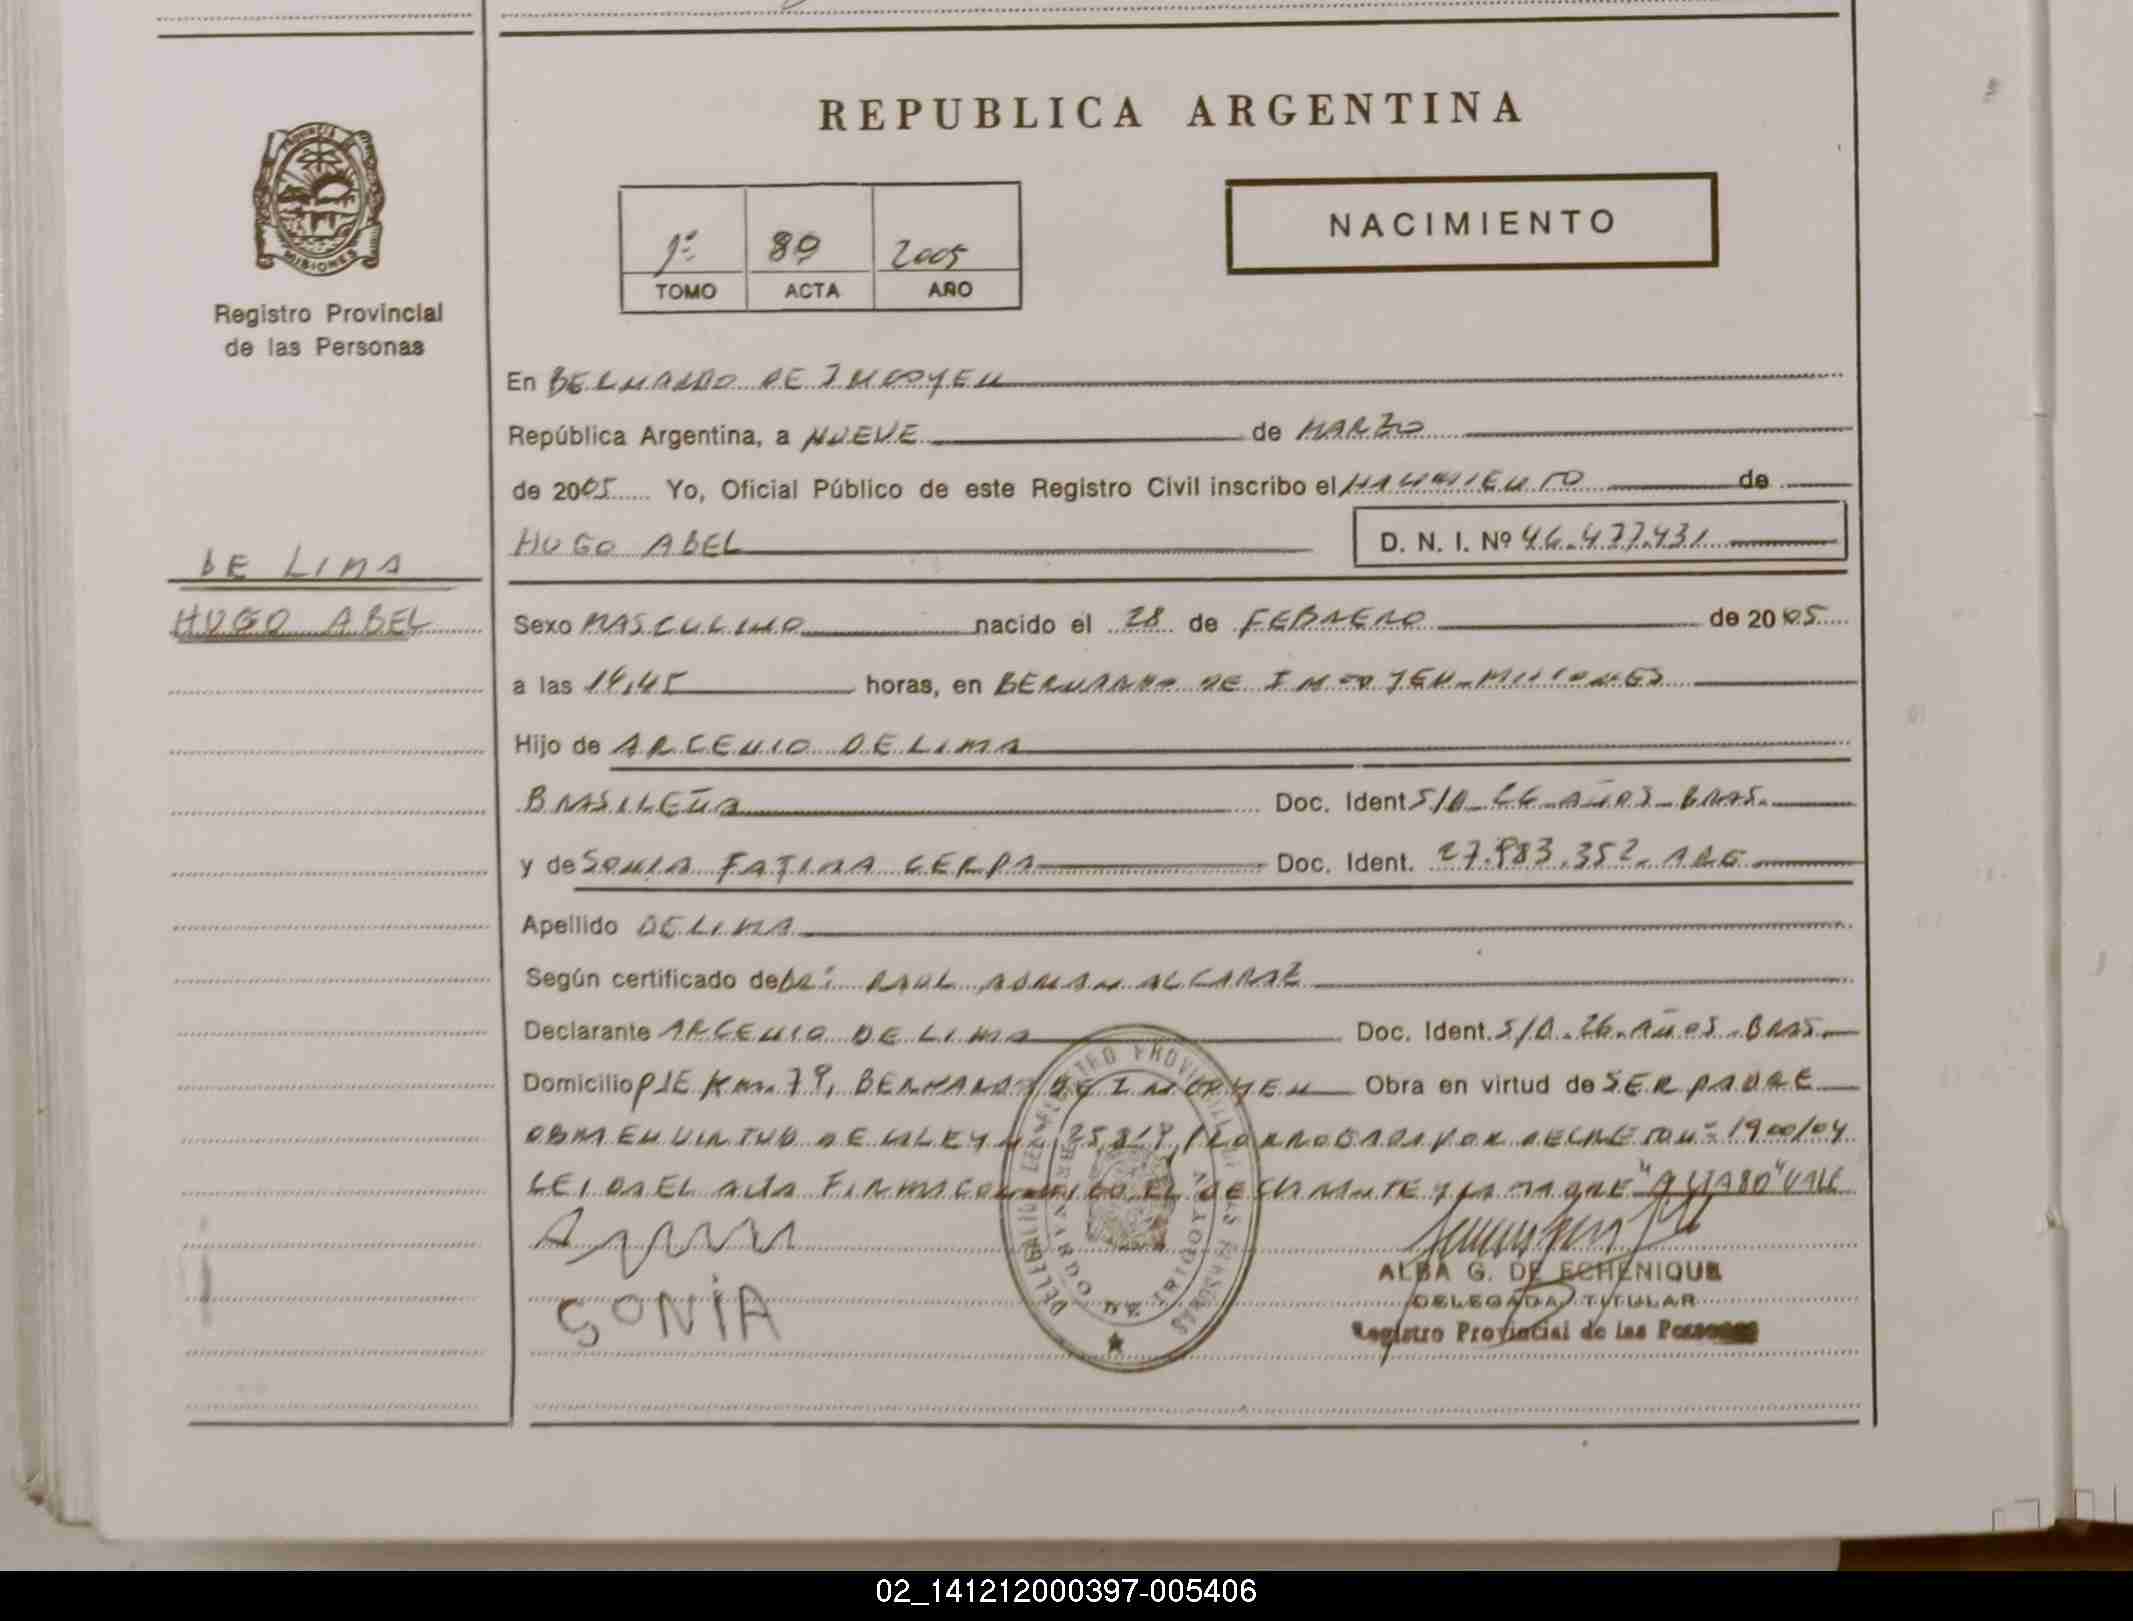 REPUBLICA ARGENTINA
MISIONES
Registro Provincial
de las Personas
1º 89 2005
TOMO ACTA AÑO
NACIMIENTO
En BERNARDO DE IRIGOYEN
República Argentina, a NUEVE de MARZO
de 2005 Yo, Oficial Público de este Registro Civil inscribo el NACIMIENTO de
HUGO ABEL D. N. I. Nº 46.477.431
DE LIMA
HUGO ABEL
Sexo MASCULINO nacido el 28 de FEBRERO de 2005
a las 14,45 horas, en BERNARDO DE IRIGOYEN-MISIONES
Hijo de ARCENIO DE LIMA
BRASILEÑA Doc. Ident S/D- 26-AÑOS-BRAS.
y de SONIA FATIMA CERPA Doc. Ident. 27.983.352- ARG
Apellido DE LIMA
Según certificado de DR: RAUL ADRIAN ALCARAZ
Declarante ARCENIO DE LIMA Doc. Ident. S/D.26.AÑOS.BRAS.
Domicilio PJE Km.79, BERNARDO DE IRIGOYEN Obra en virtud de SER PADRE
OBRA EN VIRTUD DE LA LEY Nº 25.819, PRORROGADA POR DECRETO Nº 1900/04
LEIDA EL ACTA FIRMA CONMIGO EL DECLARANTE Y LA MADRE VALE
SONIA
ALBA G. DE ECHENIQUE
DELEGADA TITULAR
Registro Provincial de las Personas
02_141212000397-005406